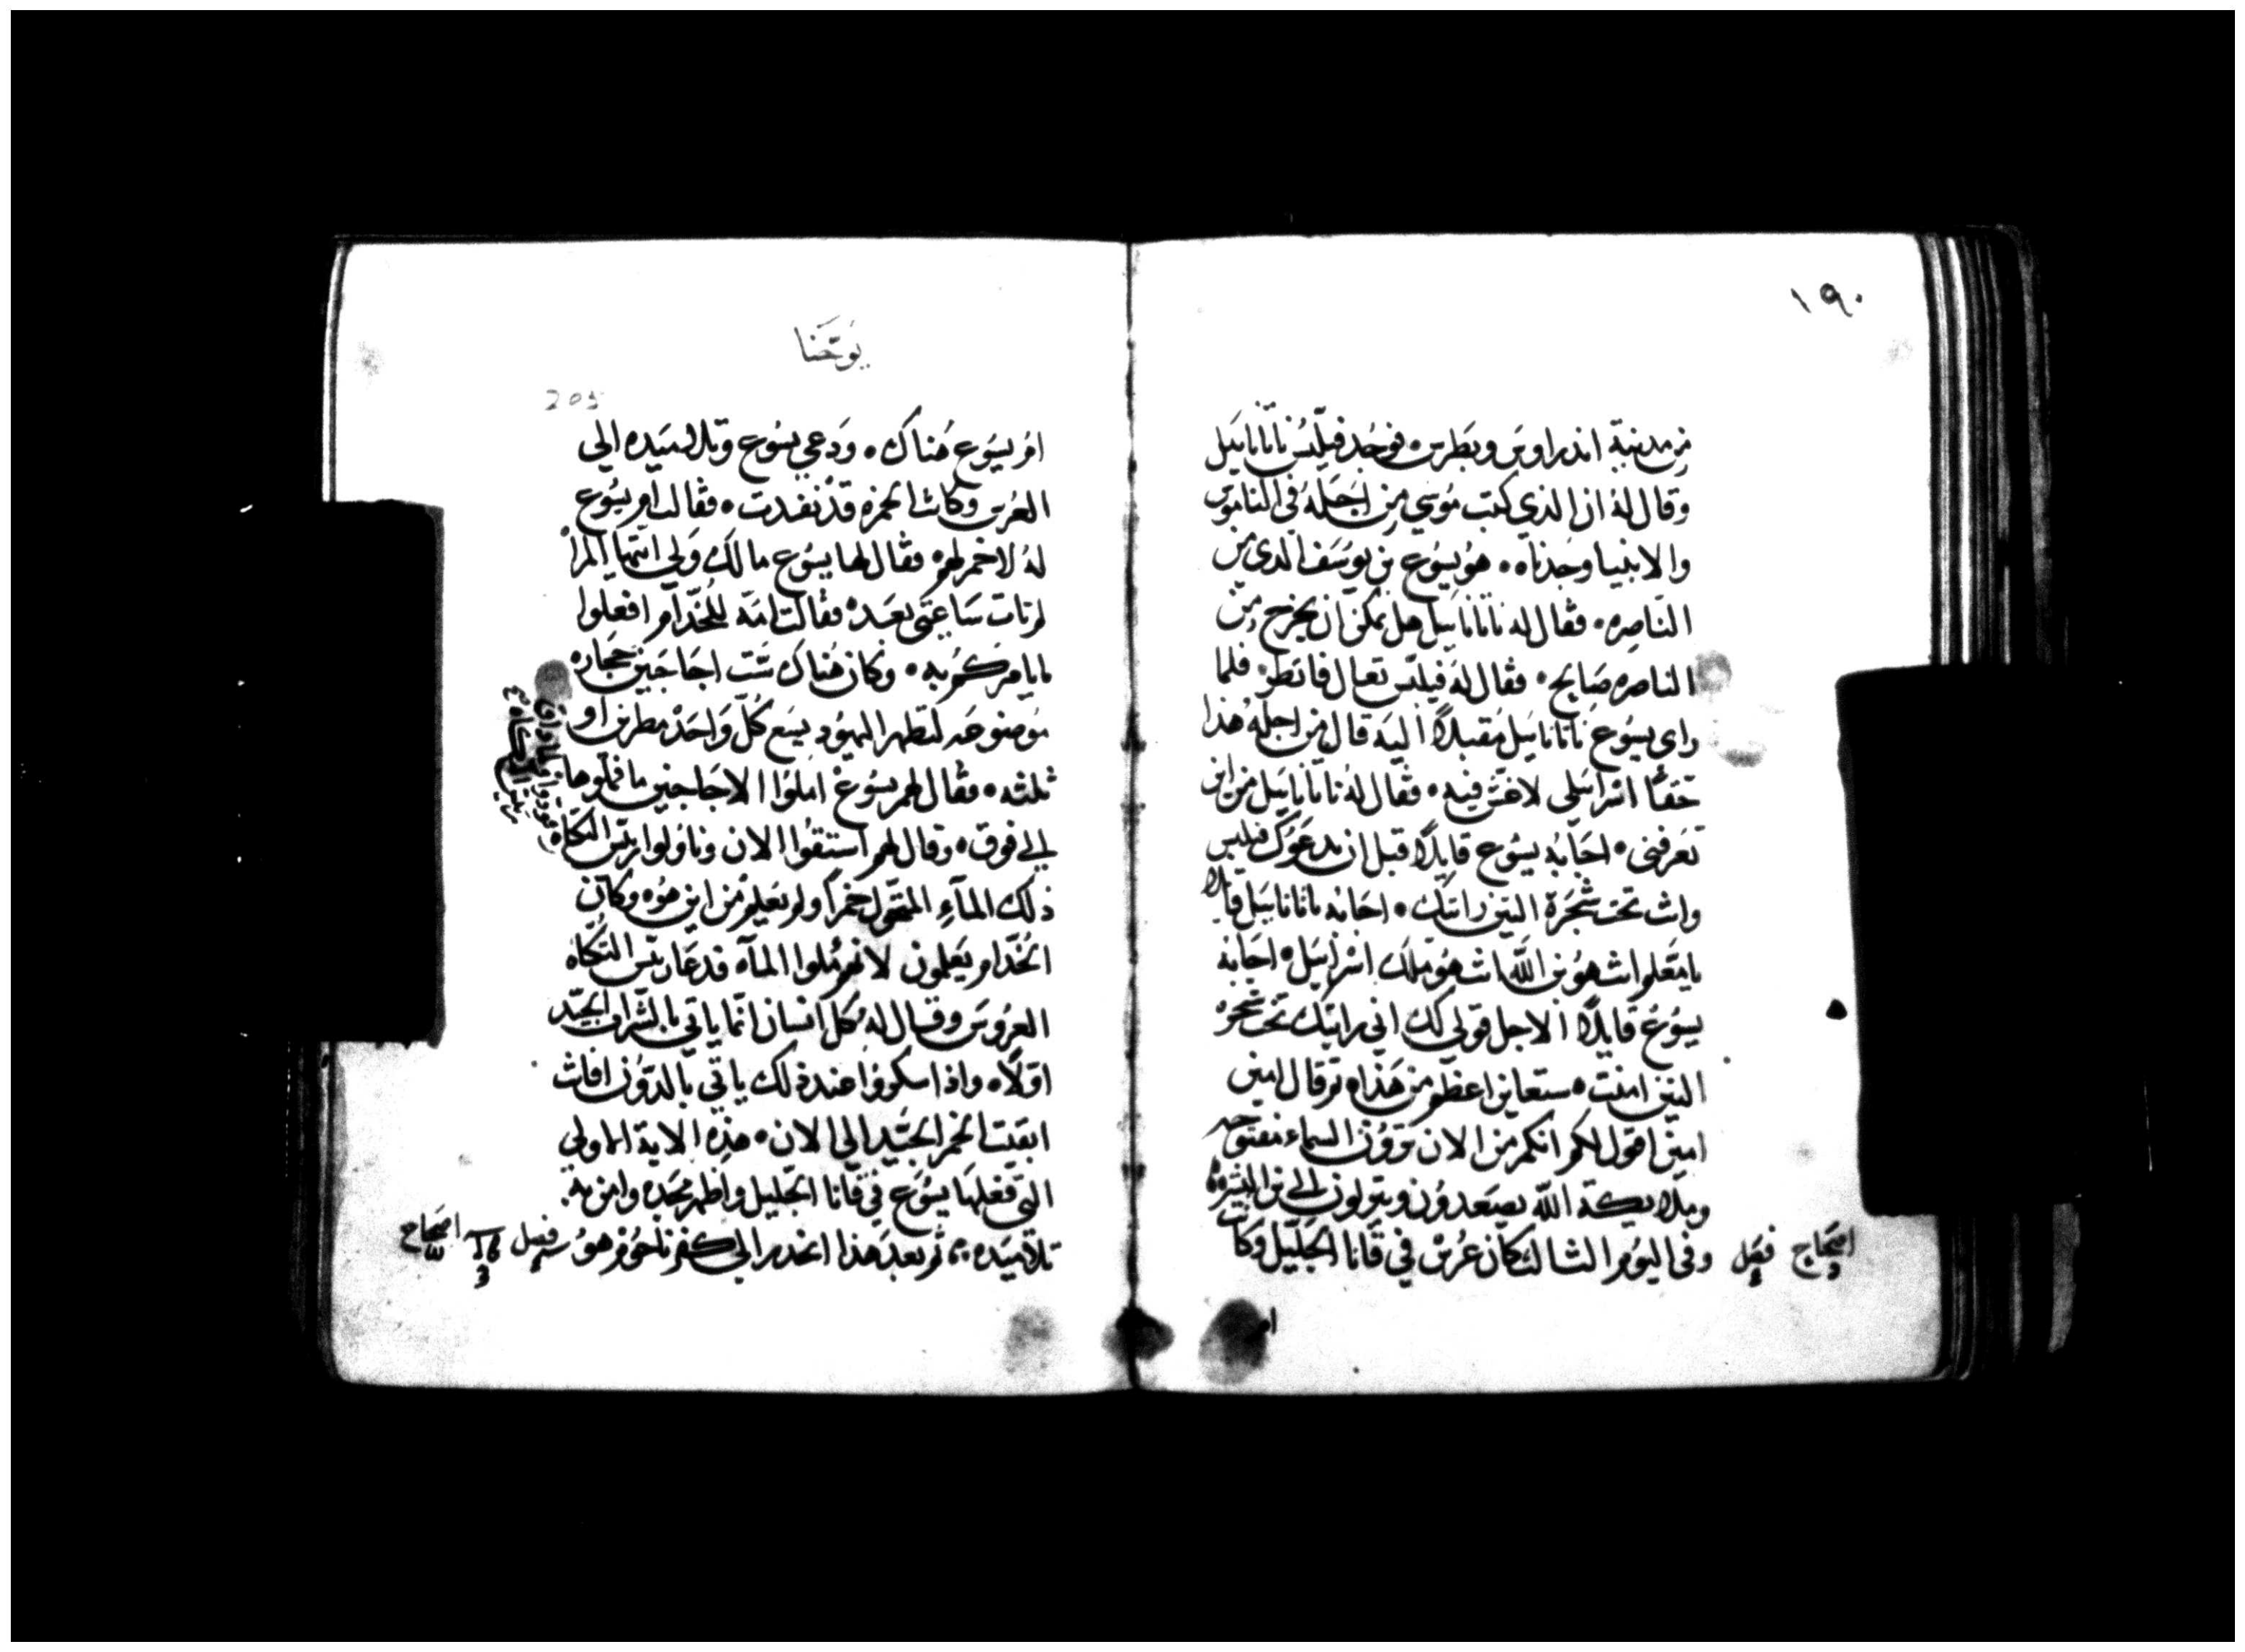 ١٩٠
من مدينة اندراوس وبطرس • فوجد فيلبس ناثانايل
وقال له ان الذي كتب موسي من اجله في الناموس
والانبيا وجدناه • هو يسوع بن يوسف الدي من
الناصره • فقال له ناثانايل هل يمكن ان يخرج من
الناصره صالح • فقال له فيلبس تعال فانظر • فلما
راى يسوع ناثانايل مقبلاً اليه قال من اجله هذا
حقاً اسرايلي لا غش فيه • فقال له ناثانايل من اين
تعرفني • اجابه يسوع قايلاً قبل ان يدعوك فيلبس
وانت تحت شجرة التين رايتك • اجابه ناثانايل قايلا
يا معلم انت هو بن الله انت هو ملك اسرايل • اجابه
يسوع قايلاً الاجل قولي لك اني رايتك تحت شجره
التين امنت • ستعاين اعظم من هذا • ثم قال امين
امين اقول لكم انكم من الان ترون السماء مفتوحه
وملايكة الله يصعدون وينزلون الي بن البشر •
وفي اليوم الثالث كان عرس في قانا الجليل وكانت
اصحاح فصل
ام
يوحنا
205
ام يسوع هناك • ودعي يسوع وتلاميده الي
العرس وكانت الخمره قد نفدت • فقالت ام يسوع
له لا خمر لهم • فقال لها يسوع ما لك ولي ايتها المراه
لم تات ساعتي بعد • فقالت امه للخدام افعلوا
ما يامركم به • وكان هناك ست اجاجين حجاره
موضوعه لتطهر اليهود يسع كل واحد مطرين او
ثلثه • فقال لهم يسوع املوا الاجاجين ما فملوها
الي فوق • وقال لهم استقوا الان وناولوا ريس التكاه
ذلك الماء المتحول خمراً ولم يعلم من اين هو • وكان
الخدام يعلمون لانهم ملوا الماء فدعا ريس التكاه
العروس وقال له كل انسان انما ياتي بالشراب الجيد
اولاً • واذا سكروا عند ذلك ياتي بالدون افانت
ابقيت الخمر الجيد الي الان • هذه الاية الاولي
التي فعلها يسوع في قانا الجليل واظهر مجده وامن به
تلاميده • ثم بعد هذا انحدر الي كفرناحوم هو
فصل 16 3 اصحاح